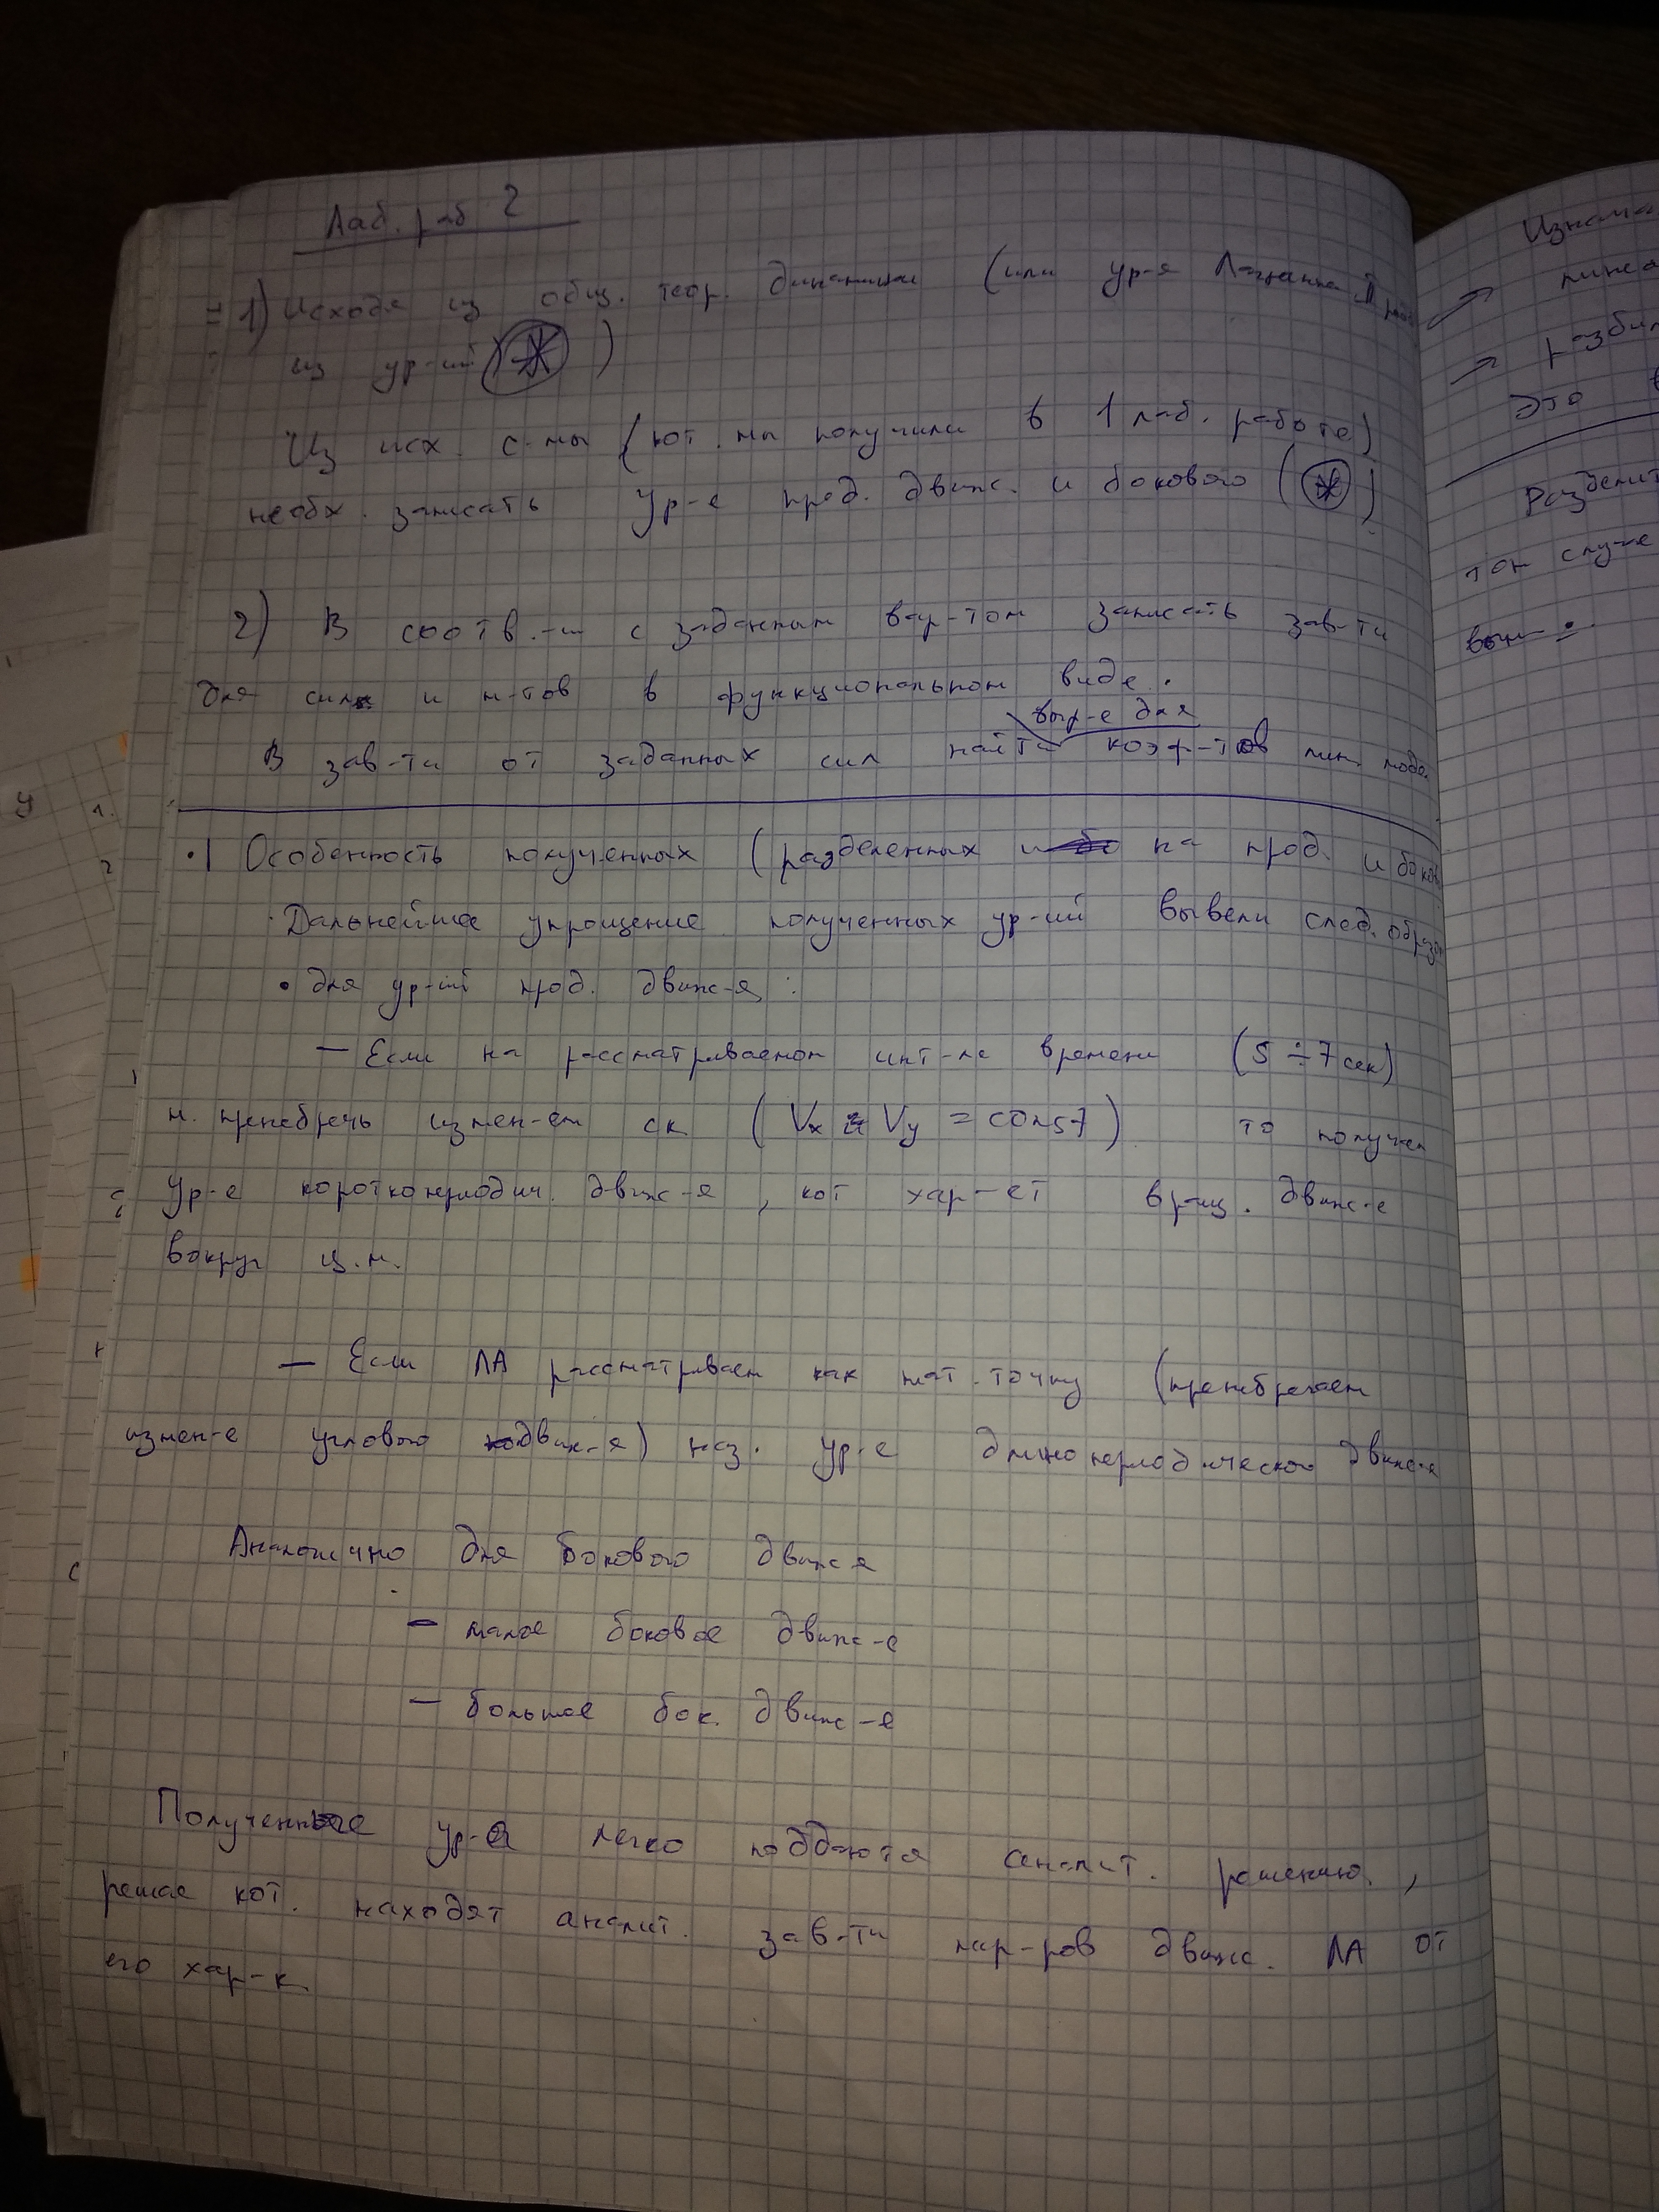 Лаб. раб 2
1) Исходя из общ. теор. динамики (или ур-я Лагранжа II рода
из ур-ий (*) )
Из исх. с-мы (кот. мы получили в 1 лаб. работе)
необх. записать ур-е прод. движ. и бокового (*)
2) В соотв.-и с заданным вар-том записать зав-ти
для сил и м-тов в функциональном виде.
выр-е для
В зав-ти от заданных сил найти коэф-тов лин. моде
•| Особенность полученных (разделенных на прод. и боков
· Дальнейшее упрощение полученных ур-ий вывели след. образом
• для ур-ий прод. движ-я:
— Если на рассматриваемом инт-ле времени (5 ÷ 7 сек)
м. пренебречь измен-ем ск (Vx и Vy = const) то получ
ур-е короткопериодич. движ-я, кот хар-ет вращ. движ-е
вокруг ц.м.
— Если ЛА рассматриваем как мат. точку (пренебрегаем
измен-е углового движ-я) наз. ур-е длинопериодического движ-я
Аналогично для бокового движ-я
— малое боковое движ-е
— большое бок. движ-е
Полученные ур-я легко поддаются аналит. решению,
решая кот. находят аналит. зав-ти пар-ров движ. ЛА от
его хар-к
Изнача
лине
разбил
Это в
Разделит
том случае